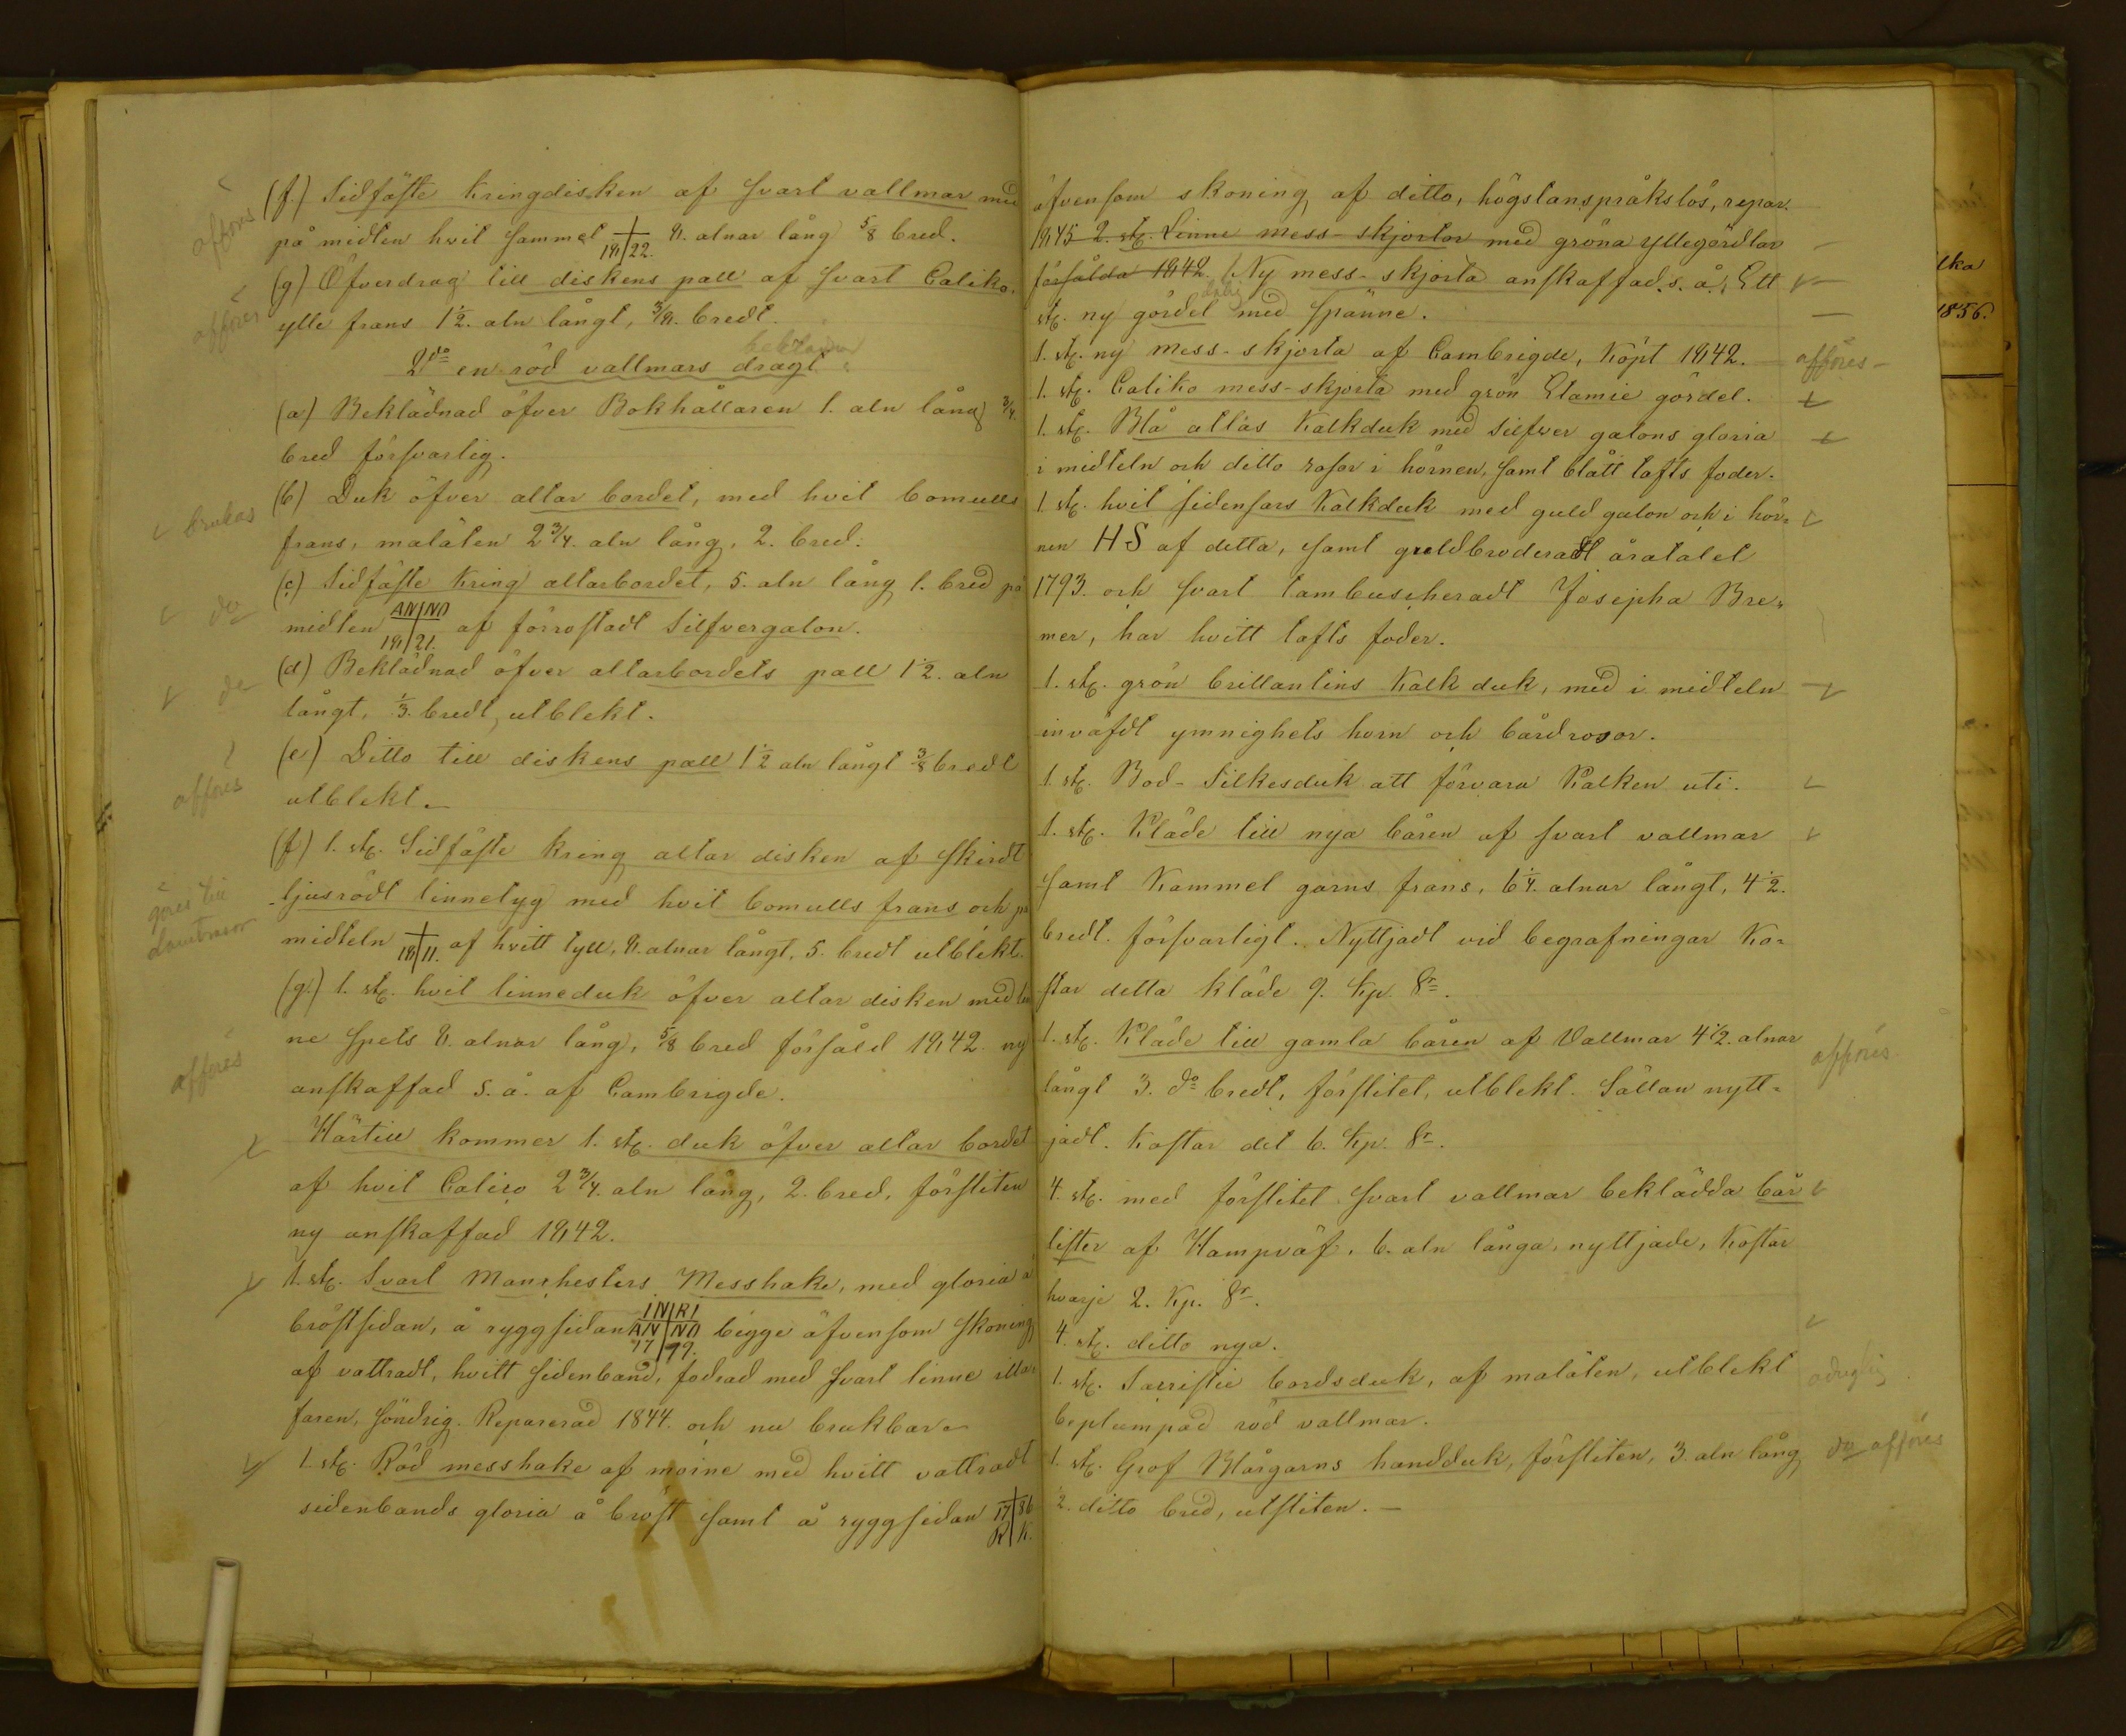 (f.) Sidfäste Kringdisken af svart vallmar med
afföres
på midten hvit sammet 18/22. 8. alnar lång 5/8 bred.
(g) Öfverdrag till diskens pall af svart Caliko,
afföres
ylle frans 1½. aln långt, 3/8. bredt.
2do en röd vallmars dragt
(a) Beklädnad öfver Bokhållaren 1. aln lång 3/4.
bred försvarlig.
(b) Duk öfver altar bordet, med hvit bomulls
brukas
frans, malåten 2¾. aln lång, 2. bred.
(c) Sidfäste Kring altarbordet, 5. aln lång 1. bred på
do
midten ANNO 18/21. af förrostadt Silfvergalon.
(d) Beklädnad öfver altarbordets pall 1½. aln
do
långt, ⅓. bredt, utblekt.
(e) Ditto till diskens pall 1½ aln långt 3/8 bredt
afföres
utblekt.
(f) 1. st. Sidfäste kring altar disken af Skirdt
göres till
ljusrödt linnetyg med hvit bomulls frans och på
midteln 18/11. af hvitt tyll, 8. alnar långt, 5. bredt utblekt.
(g.) 1. st. hvit linneduk öfver altar disken med lin
ne spets 8. alnar lång, 5/8 bred försåld 1842 ny
afföres
anskaffad s. å. af Cambrigde.
Härtill kommer 1. st. duk öfver altar bordet
af hvit Calico 2¾. aln lång, 2. bred, försliten
ny anskaffad 1842.
1. st. Svart Manchesters Messhake, med gloria å
bröstsidan, å ryggsidan INRI ANNO 17/99. begge äfvensom skoning
af vattradt, hvitt sidenband, fodrad med svart linne illa
faren, söndrig. Reparerad 1844. och nu brukbar.
1. st. Röd messhake af moine med hvitt vattradt
sidenbands gloria å bröst samt å ryggsidan 17/86 R K.
äfvensom skoning af ditto, högstanspråkslös, repar.
1845 2. st. Linne mess-skjortor med gröna yllegördlar
försålda 1842. Ny mess-skjorta anskaffad. s. å. Ett
st. ny gördel med spänne.
1. st. ny mess-skjorta af Cambrigde, Köpt 1842.
afföres
1. st. Caliko mess-skjorta med grön Etamie gördel.
1. st. Blå atlas Kalkduk med silfver galons gloria
i midteln och ditto rosor i hörnen, samt blått tafts foder.
1 st. hvit sidensars Kalkduk med guld galon och i hör-
nen HS af detta, samt guldbroderadt åratalet
1793. och svart tambuscheradt Josepha Bre-
mer, har hvitt tafts foder.
1. st. grön brillantins Kalk duk, med i midteln
inväfdt ymnighets horn och bårdrosor.
1. st. Bod-Silkesduk att förvara Kalken uti.
1. st. Kläde till nya båren af svart vallmar
samt Kammel garns frans, 6¼. alnar långt, 4½.
bredt. försvarligt. Nyttjadt vid begrafningar Ko-
star detta kläde 9. Kp. Sr.
1. st. Kläde till gamla båren af Vallmar 4½. alnar
afföres
långt 3. do bredt, förslitet, utblekt. Sällan nytt-
jadt. Kostar det 6. Kp. Sr.
4. st. med förslitet svart vallmar beklädda bår
lister af Hampväf. 6. aln långa, nyttjade, Kostar
hvarje 2. Kp. Sr.
4. st. ditto nya.
1. st. Sacristie bordsduk, af malåten, utblekt
oduglig
beplumpad röd vallmar.
1. st. Grof Blårgarns handduk, försliten, 3. aln lång
do afföres
2. ditto bred, utsliten.
lka
1856.